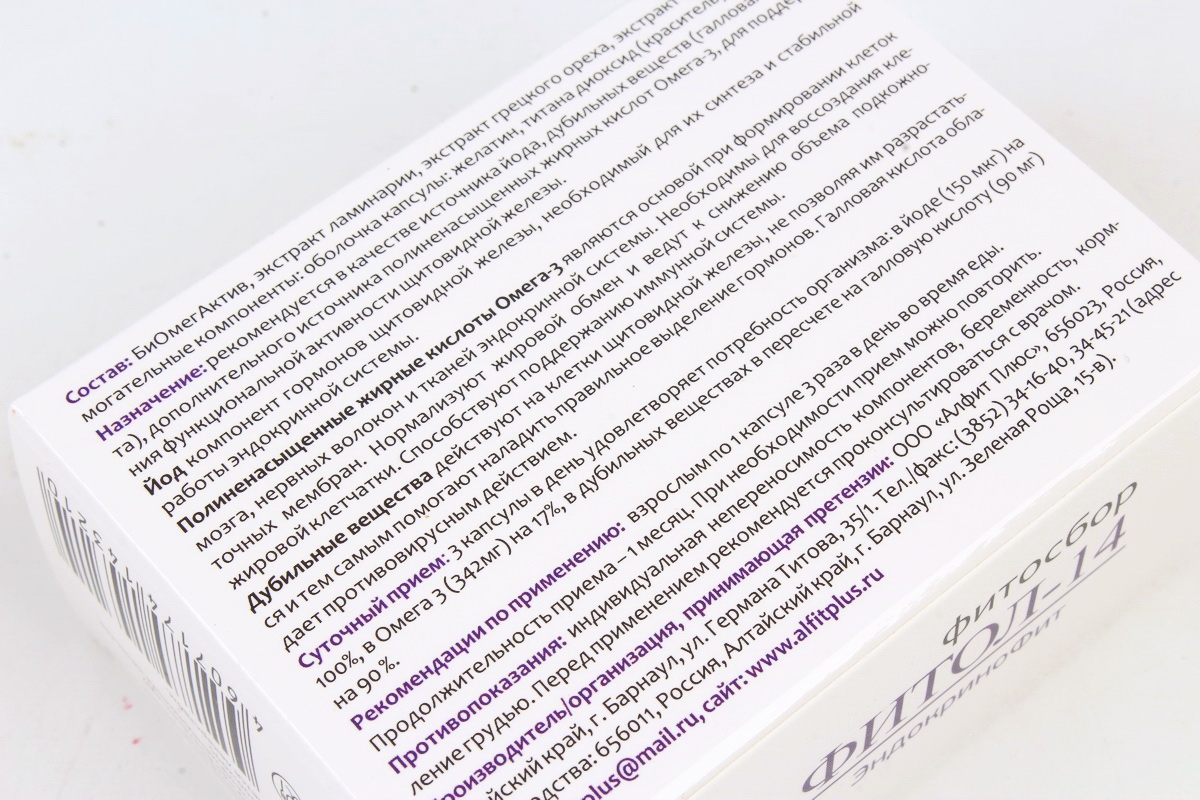 Состав: БиОмегАктив, экстракт ламинарии, экстракт грецкого ореха, экстракт
могательные компоненты: оболочка капсулы: желатин, титана диоксид (краситель)
Назначение: рекомендуется в качестве источника йода, дубильных веществ (галловая
та), дополнительного источника полиненасыщенных жирных кислот Омега-3, для поддер
ния функциональной активности щитовидной железы.
Йод компонент гормонов щитовидной железы, необходимый для их синтеза и стабильной
работы эндокринной системы.
Полиненасыщенные жирные кислоты Омега-3 являются основой при формировании клеток
мозга, нервных волокон и тканей эндокринной системы. Необходимы для воссоздания кле-
точных мембран. Нормализуют жировой обмен и ведут к снижению объема подкожно-
жировой клетчатки. Способствуют поддержанию иммунной системы.
Дубильные вещества действуют на клетки щитовидной железы, не позволяя им разрастать-
ся и тем самым помогают наладить правильное выделение гормонов. Галловая кислота обла-
дает противовирусным действием.
Суточный прием: 3 капсулы в день удовлетворяет потребность организма: в йоде (150 мкг) на
100%, в Омега 3 (342мг) на 17%, в дубильных веществах в пересчете на галловую кислоту (90 мг)
на 90%.
Рекомендации по применению: взрослым по 1 капсуле 3 раза в день во время еды.
Продолжительность приема – 1 месяц. При необходимости прием можно повторить.
Противопоказания: индивидуальная непереносимость компонентов, беременность, корм-
ление грудью. Перед применением рекомендуется проконсультироваться с врачом.
роизводитель/организация, принимающая претензии: ООО «Алфит Плюс», 656023, Россия,
йский край, г. Барнаул, ул. Германа Титова, 35/1. Тел./факс: (3852) 34-16-40, 34-45-21 (адрес
одства: 656011, Россия, Алтайский край, г. Барнаул, ул. Зеленая Роща, 15-в).
plus@mail.ru, сайт: www.alfitplus.ru
фитосбор
ФИТОЛ-14
эндокринофит